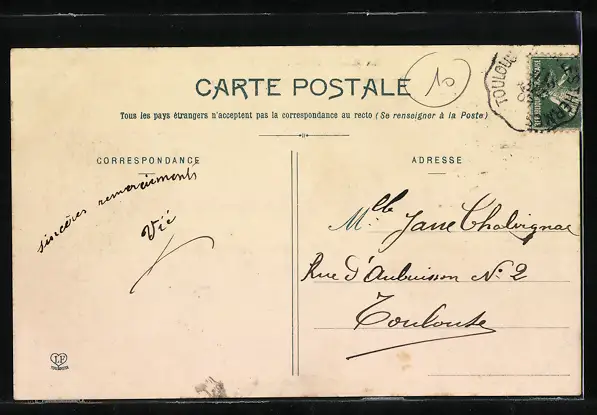 CARTE POSTALE
10
TOULOUSE
Tous les pays étrangers n'acceptent pas la correspondance au recto (Se renseigner à la Poste)
CORRESPONDANCE
sincères remerciements
Vié
ADRESSE
Mlle Jane Chalvignac
Rue d'Aubuisson No. 2
Toulouse